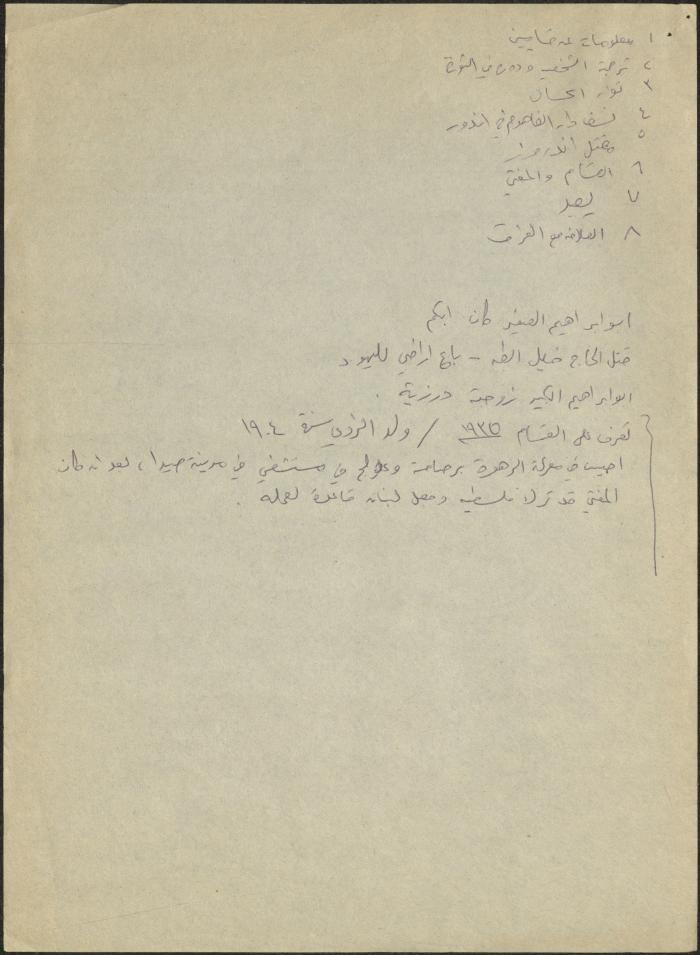 ١ معلومات عن
٢ ترجمة الشخص ودوره في الثورة
٣ ثوار
٤ نسف دار الفاهوم في اندور
٥ مقتل اندروز
٦ القسام والمفتي
٧ يعبد
٨ العلاقة مع
ابو ابراهيم الصغير كان ابكم
قتل الحاج خليل الطه - باع اراضي لليهود
ابو ابراهيم الكبير زوجته درزية .
تعرف على القسام ١٩٢٥ / ولد سنة ١٩٠٤
اصيب في معركة الزهرة برصاصة وعولج في مستشفى في مدينة صيدا ، بعد ان كان
المفتي قد ترك فلسطين وجعل لبنان قاعدة لعمله .